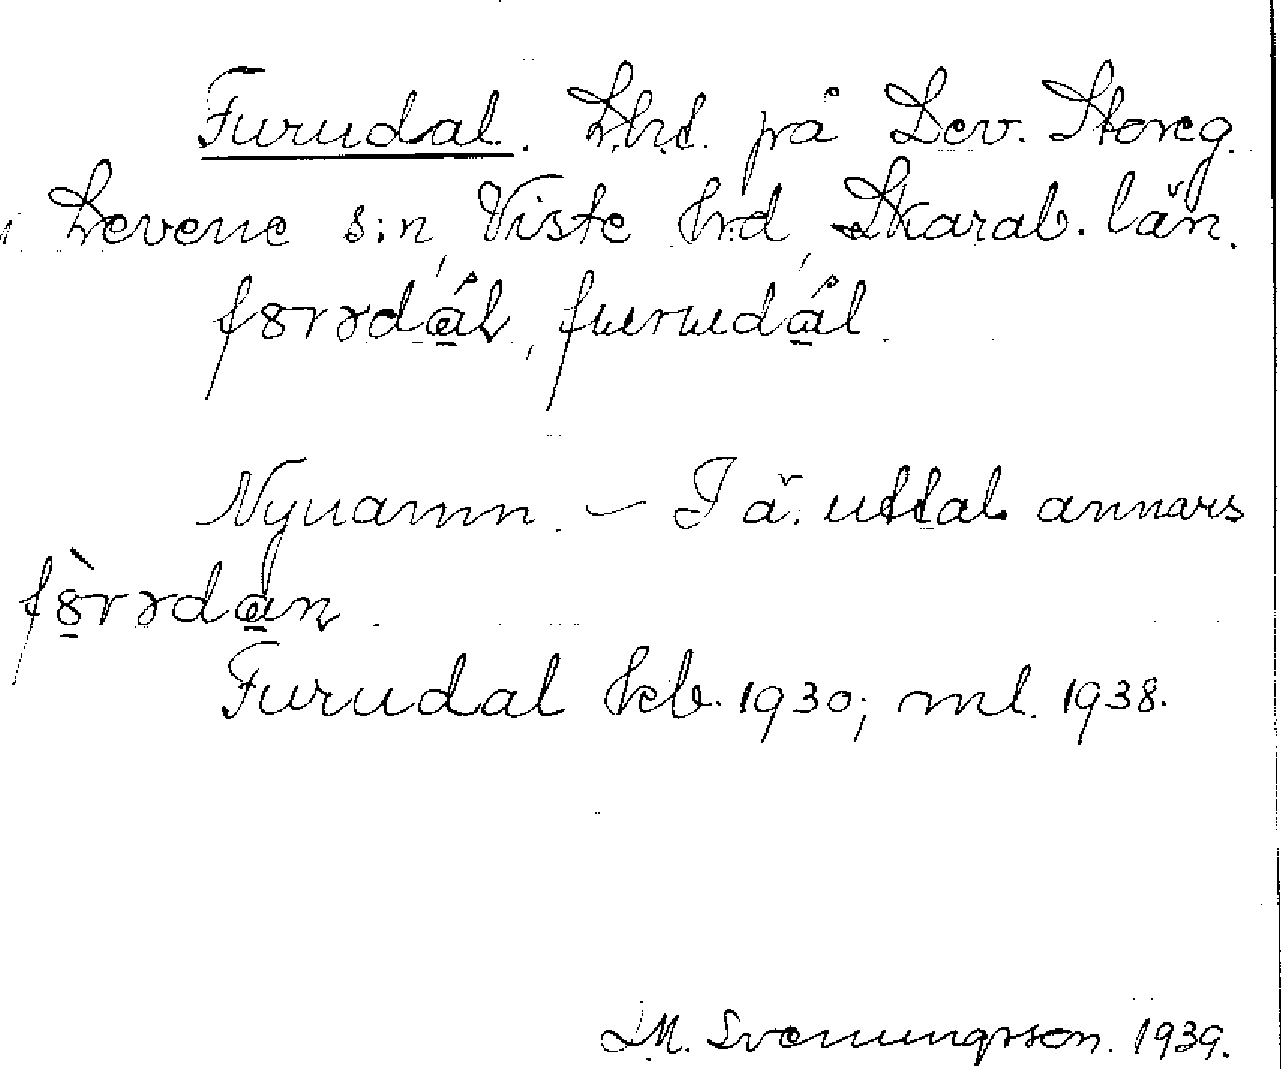 Furudal. Lhd. på Lev. Storeg.
i Levene s:n, Viste hrd, Skarab. län.
fȣrədál, furudál.
Nynamn. – I ä. uttal annars
fȣ̀rədan.
Furudal kb. 1930; ml. 1938.
Svenungsson. 1939.